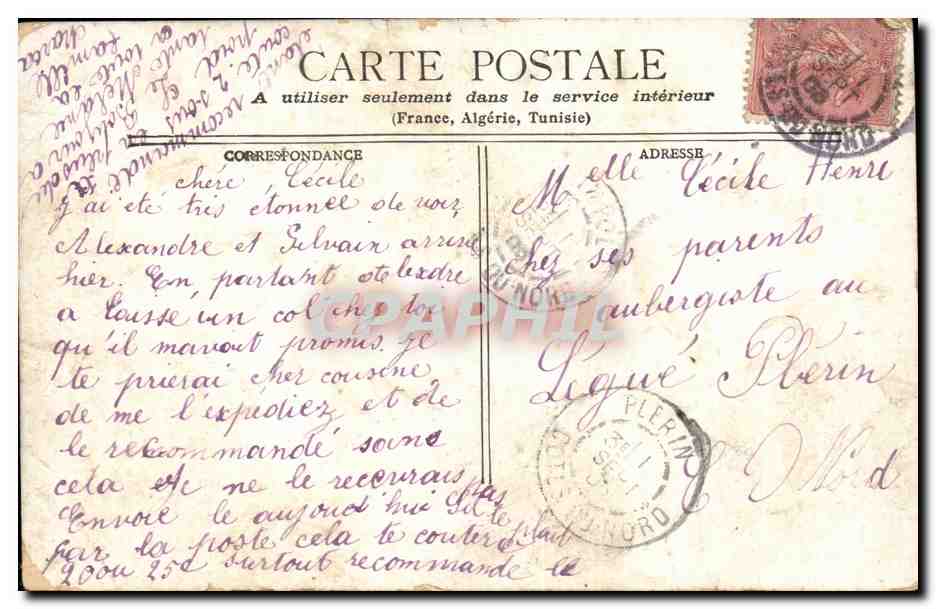 CARTE POSTALE
A utiliser seulement dans le service intérieur
(France, Algérie, Tunisie)
CORRESPONDANCE
ADRESSE
chére Cécile
J'ai eté tris etonneé de voir
Alexandre et Silvain arrive
hier. En partant
a laissé un col chez toi
qu'il mavait promis. Je
te prierai cher cousine
de me l'expédiez et de
le recommandé sans
cela je ne le recevrais pas
Envoie le aujourd'hui S'il te plait
par la poste cela te coutera
20 ou 25c surtout recommande le
recommandé
coute 2 sous de plus
pour
Bonjour a
a toute la
famille
Melle Cécile Henri
chez ses parents
aubergiste au
Légué Plérin
C du Nord
PLERIN
COTES DU NORD
CPAPHIL